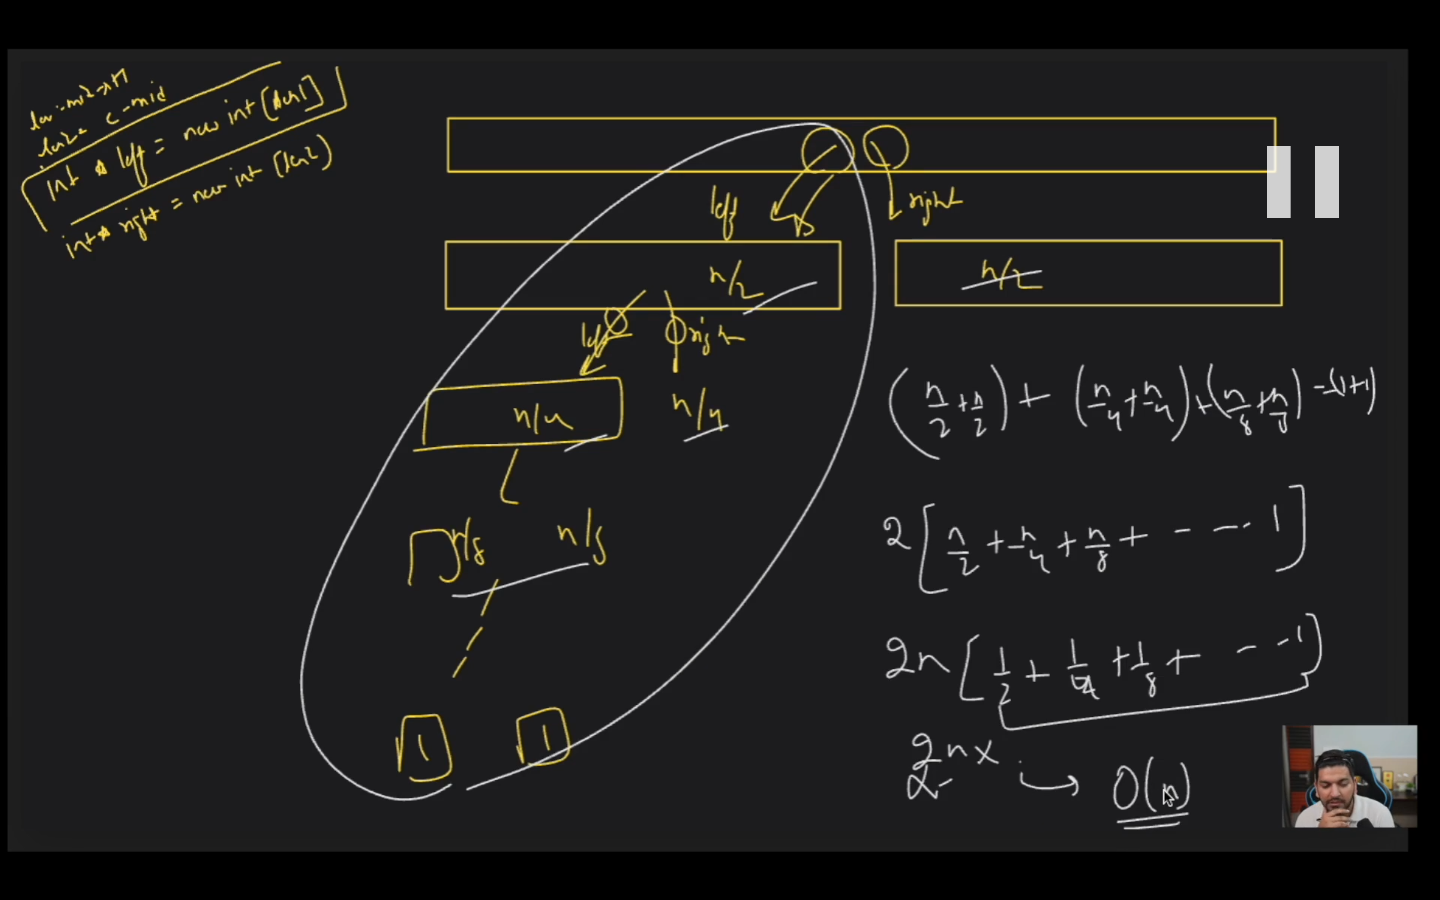 len2 = e-mid
int * left = new int [len1]
int * right = new int [len2]
left
right
n/2
n/2
left
right
n/4
n/4
n/8
n/8
1
1
(n/2 + n/2) + (n/4 + n/4) + (n/8 + n/8) - - (1+1)
2 [n/2 + n/4 + n/8 + - - - - 1]
2n [1/2 + 1/4 + 1/8 + - - 1]
2n x
O(n)